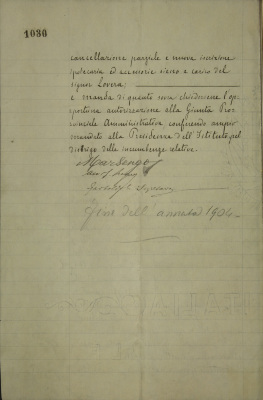 1030
cancellazione parziale e nuova iscrizione
ipotecaria ed accessorie siano a carico del
signor Lovera;
e manda di quanto sovra chiedersene l'op-
portuna autorizzazione alla Giunta Pro-
vinciale Amministrativa conferendo ampio
mandato alla Presidenza dell'Istituto pel
disbrigo delle incumbenze relative.
Marsengo
Fine dell'annata 1904.